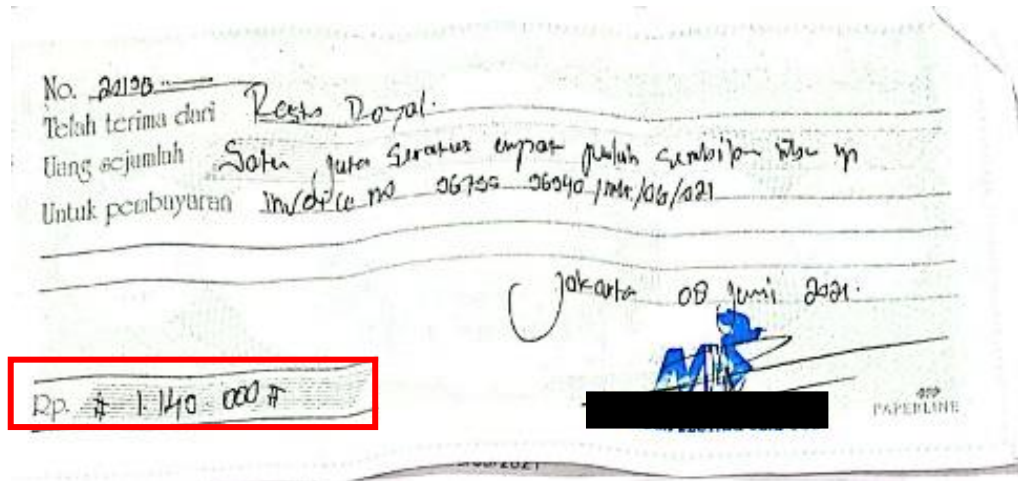 No. 20198
Telah terima dari Resto Royal.
Uang sejumlah Satu juta seratus empat puluh sembilan ribu rp
Untuk pembayaran invoice no 06739 06940/mk/06/021
Jakarta 08 Juni 2021.
Rp. # 1.140 000 #
PAPERLINE